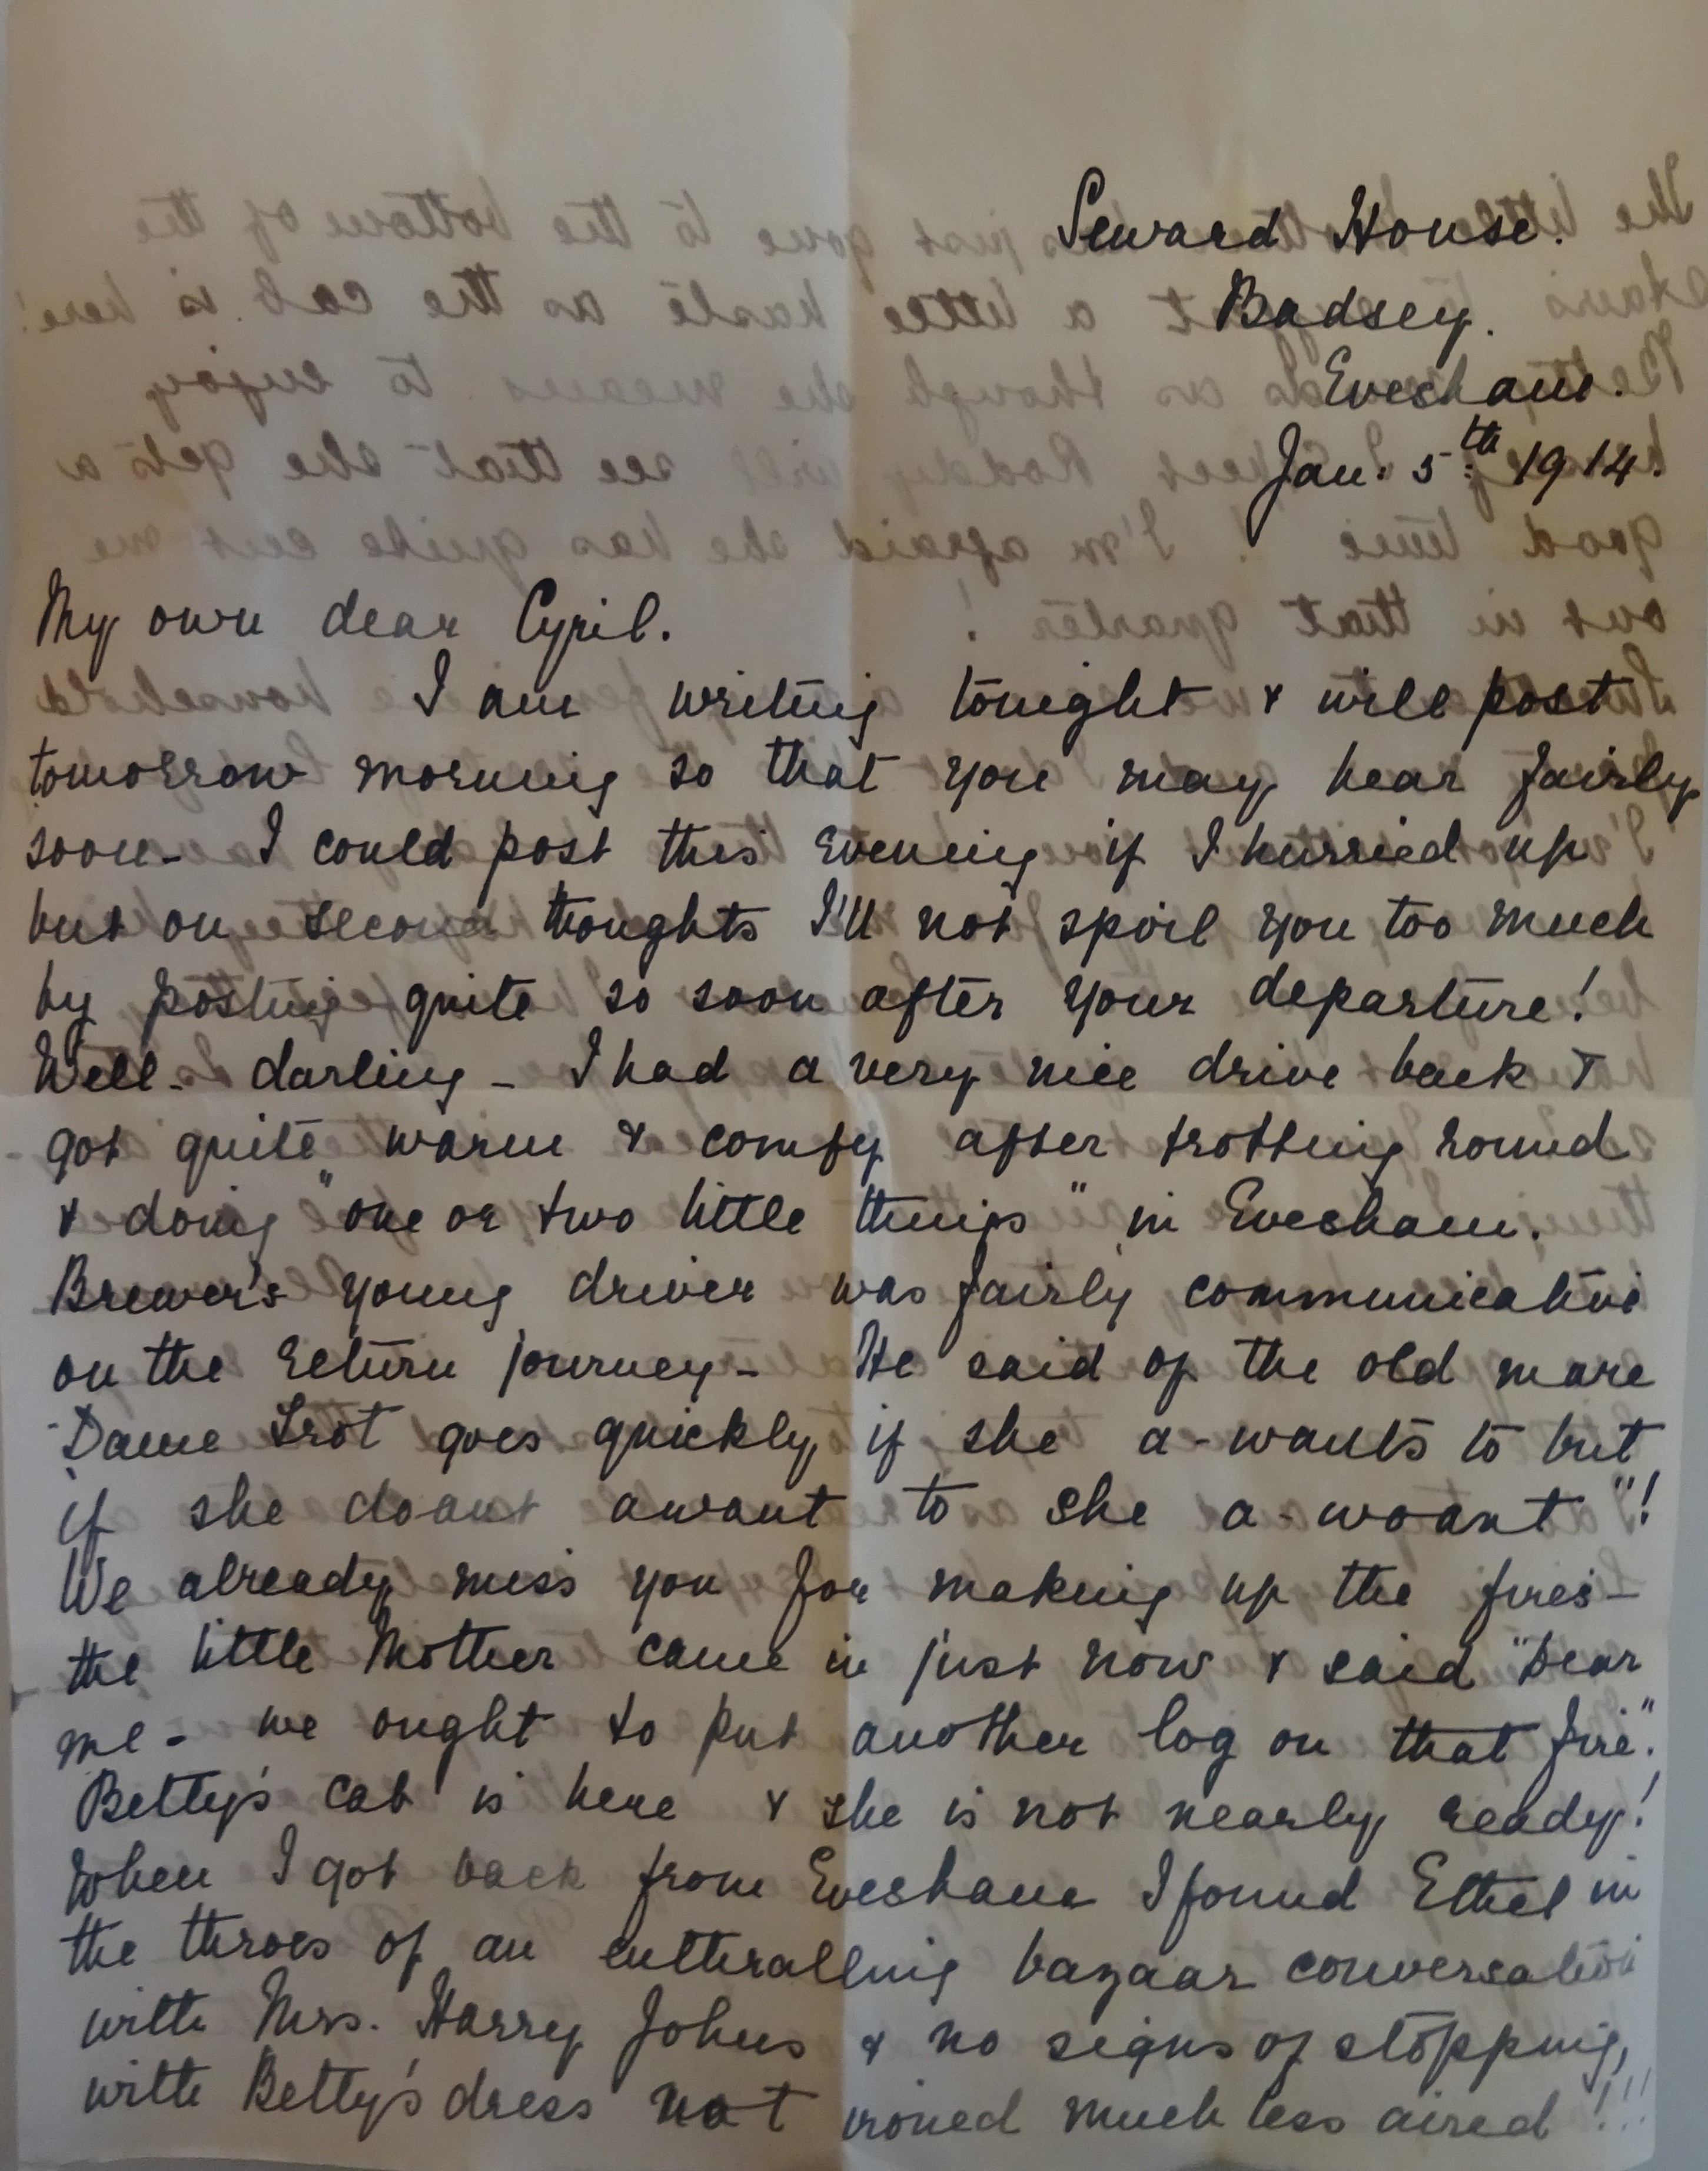 Seward House.
Badsey.
Evesham.
Jan: 5th 1914.
My own dear Cyril.
I am writing tonight & will post
tomorrow morning so that you may hear fairly
soon - I could post this evening if I hurried up
but on second thoughts I'll not spoil you too much
by posting quite so soon after your departure!
Well - darling - I had a very nice drive back &
got quite warm & comfy after trotting round
& doing "one or two little things" in Evesham.
Brewer's young driver was fairly communicative
on the return journey - He said of the old mare
"Dame Trot goes quickly if she a-wants to but
if she doant awant to she a-woant"!
We already miss you for making up the fires -
the little Mother came in just now & said "Dear
me - we ought to put another log on that fire".
Betty's cab is here & she is not nearly ready!
When I got back from Evesham I found Ethel in
the throes of an enthralling bazaar conversation
with Mrs. Harry Johns & no signs of stopping,
with Betty's dress not ironed much less aired!!!